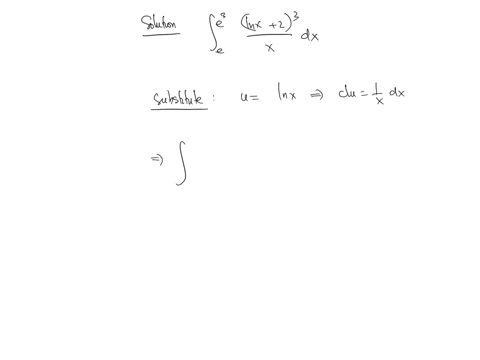 Solution ∫_e^{e^3} (ln x + 2)^3 / x dx
Substitute : u = ln x ⇒ du = 1/x dx
⇒ ∫